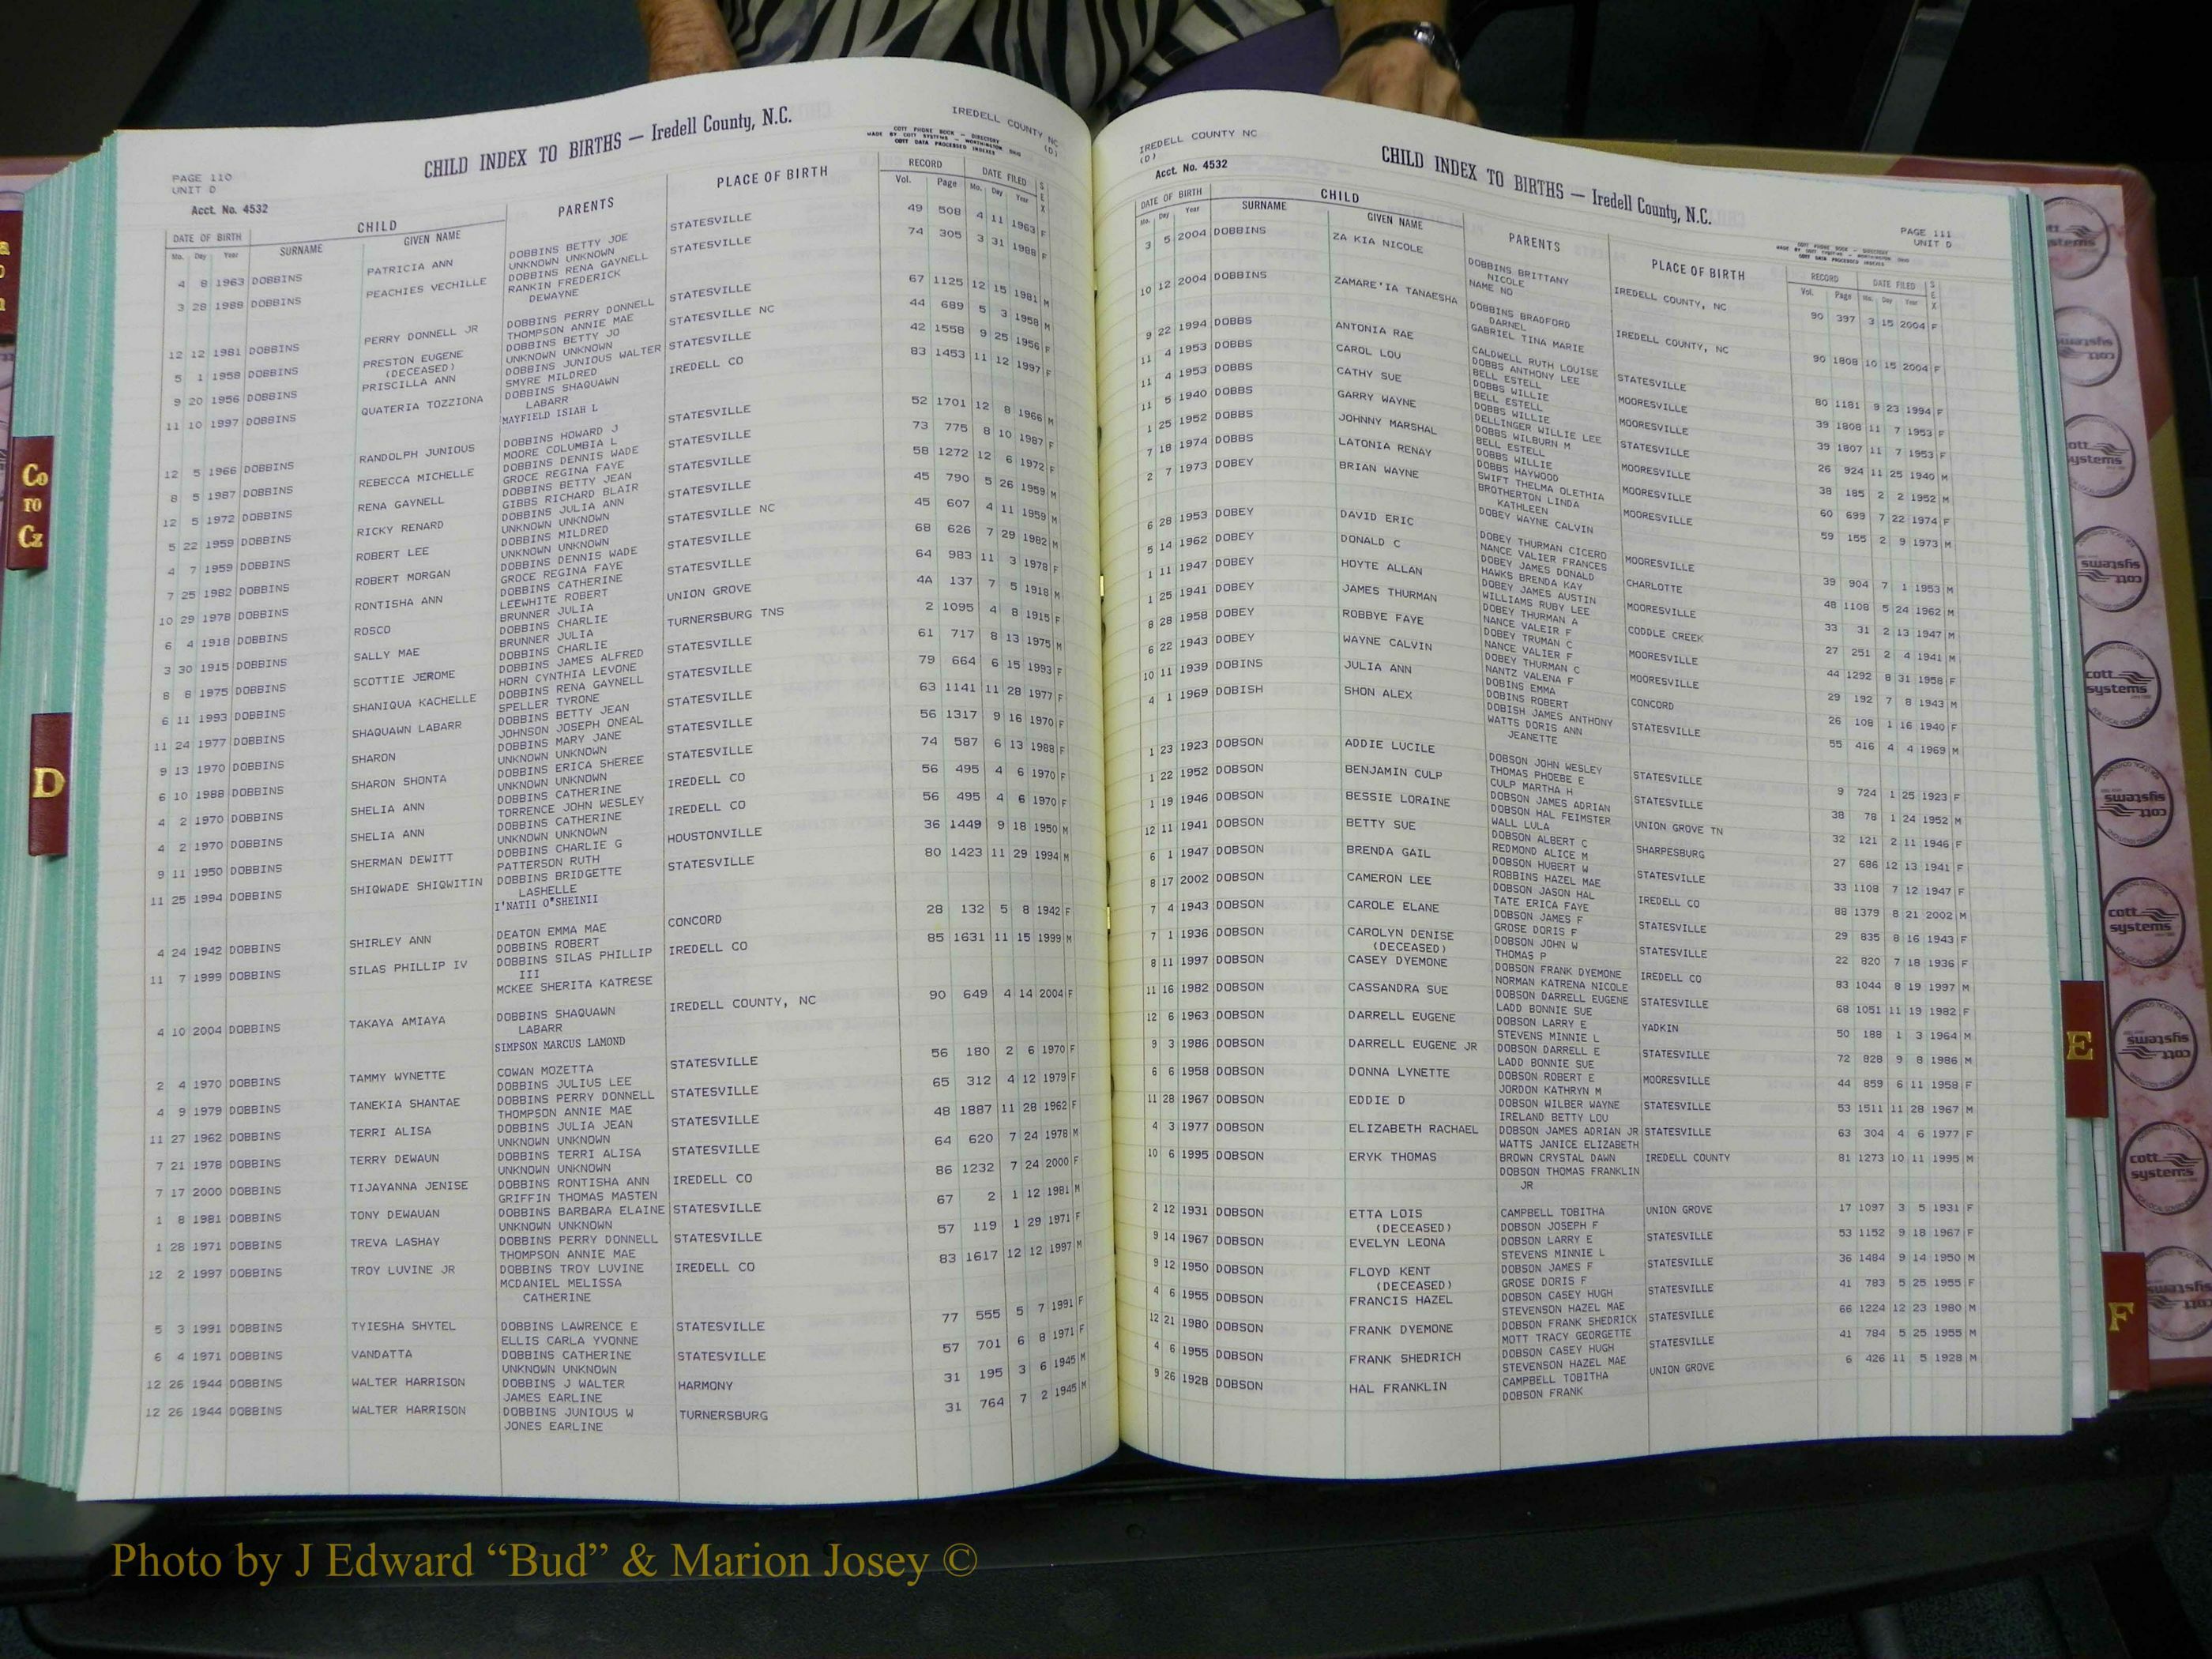 IREDELL COUNTY NC
(D)
CHILD INDEX TO BIRTHS — Iredell County, N.C.
COTT PHONE BOOK - DIRECTORY
MADE BY COTT SYSTEMS - WORTHINGTON OHIO
COTT DATA PROCESSED INDEXES
PAGE 110
UNIT D
Acct. No. 4532
DATE OF BIRTH CHILD PARENTS PLACE OF BIRTH RECORD DATE FILED SEX
Mo. Day Year SURNAME GIVEN NAME Vol. Page Mo. Day Year
4 8 1963 DOBBINS PATRICIA ANN DOBBINS BETTY JOE STATESVILLE 49 508 4 11 1963 F
UNKNOWN UNKNOWN
3 28 1988 DOBBINS PEACHIES VECHILLE DOBBINS RENA GAYNELL STATESVILLE 74 305 3 31 1988 F
RANKIN FREDERICK
DEWAYNE
12 12 1981 DOBBINS PERRY DONNELL JR DOBBINS PERRY DONNELL STATESVILLE 67 1125 12 15 1981 M
THOMPSON ANNIE MAE
5 1 1958 DOBBINS PRESTON EUGENE DOBBINS BETTY JO STATESVILLE NC 44 689 5 3 1958 M
(DECEASED) UNKNOWN UNKNOWN
9 20 1956 DOBBINS PRISCILLA ANN DOBBINS JUNIOUS WALTER STATESVILLE 42 1558 9 25 1956 F
SMYRE MILDRED
11 10 1997 DOBBINS QUATERIA TOZZIONA DOBBINS SHAQUAWN IREDELL CO 83 1453 11 12 1997 F
LABARR
MAYFIELD ISIAH L
12 5 1966 DOBBINS RANDOLPH JUNIOUS DOBBINS HOWARD J STATESVILLE 52 1701 12 8 1966 M
MOORE COLUMBIA L
8 5 1987 DOBBINS REBECCA MICHELLE DOBBINS DENNIS WADE STATESVILLE 73 775 8 10 1987 F
GROCE REGINA FAYE
12 5 1972 DOBBINS RENA GAYNELL DOBBINS BETTY JEAN STATESVILLE 58 1272 12 6 1972 F
GIBBS RICHARD BLAIR
5 22 1959 DOBBINS RICKY RENARD DOBBINS JULIA ANN STATESVILLE 45 790 5 26 1959 M
UNKNOWN UNKNOWN
4 7 1959 DOBBINS ROBERT LEE DOBBINS MILDRED STATESVILLE NC 45 607 4 11 1959 M
UNKNOWN UNKNOWN
7 25 1982 DOBBINS ROBERT MORGAN DOBBINS DENNIS WADE STATESVILLE 68 626 7 29 1982 M
GROCE REGINA FAYE
10 29 1978 DOBBINS RONTISHA ANN DOBBINS CATHERINE STATESVILLE 64 983 11 3 1978 F
LEEWHITE ROBERT
6 4 1918 DOBBINS ROSCO BRUNNER JULIA UNION GROVE 4A 137 7 5 1918 M
DOBBINS CHARLIE
3 30 1915 DOBBINS SALLY MAE BRUNNER JULIA TURNERSBURG TNS 2 1095 4 8 1915 F
DOBBINS CHARLIE
8 8 1975 DOBBINS SCOTTIE JEROME DOBBINS JAMES ALFRED STATESVILLE 61 717 8 13 1975 M
HORN CYNTHIA LEVONE
6 11 1993 DOBBINS SHANIQUA KACHELLE DOBBINS RENA GAYNELL STATESVILLE 79 664 6 15 1993 F
SPELLER TYRONE
11 24 1977 DOBBINS SHAQUAWN LABARR DOBBINS BETTY JEAN STATESVILLE 63 1141 11 28 1977 F
JOHNSON JOSEPH ONEAL
9 13 1970 DOBBINS SHARON DOBBINS MARY JANE STATESVILLE 56 1317 9 16 1970 F
UNKNOWN UNKNOWN
6 10 1988 DOBBINS SHARON SHONTA DOBBINS ERICA SHEREE STATESVILLE 74 587 6 13 1988 F
UNKNOWN UNKNOWN
4 2 1970 DOBBINS SHELIA ANN DOBBINS CATHERINE IREDELL CO 56 495 4 6 1970 F
TORRENCE JOHN WESLEY
4 2 1970 DOBBINS SHELIA ANN DOBBINS CATHERINE IREDELL CO 56 495 4 6 1970 F
UNKNOWN UNKNOWN
9 11 1950 DOBBINS SHERMAN DEWITT DOBBINS CHARLIE G HOUSTONVILLE 36 1449 9 18 1950 M
PATTERSON RUTH
11 25 1994 DOBBINS SHIQWADE SHIQWITIN DOBBINS BRIDGETTE STATESVILLE 80 1423 11 29 1994 M
LASHELLE
I'NATII O'SHEINII
4 24 1942 DOBBINS SHIRLEY ANN DEATON EMMA MAE CONCORD 28 132 5 8 1942 F
DOBBINS ROBERT
11 7 1999 DOBBINS SILAS PHILLIP IV DOBBINS SILAS PHILLIP IREDELL CO 85 1631 11 15 1999 M
III
MCKEE SHERITA KATRESE
4 10 2004 DOBBINS TAKAYA AMIAYA DOBBINS SHAQUAWN IREDELL COUNTY, NC 90 649 4 14 2004 F
LABARR
SIMPSON MARCUS LAMOND
2 4 1970 DOBBINS TAMMY WYNETTE COWAN MOZETTA STATESVILLE 56 180 2 6 1970 F
DOBBINS JULIUS LEE
4 9 1979 DOBBINS TANEKIA SHANTAE DOBBINS PERRY DONNELL STATESVILLE 65 312 4 12 1979 F
THOMPSON ANNIE MAE
11 27 1962 DOBBINS TERRI ALISA DOBBINS JULIA JEAN STATESVILLE 48 1887 11 28 1962 F
UNKNOWN UNKNOWN
7 21 1978 DOBBINS TERRY DEWAUN DOBBINS TERRI ALISA STATESVILLE 64 620 7 24 1978 M
UNKNOWN UNKNOWN
7 17 2000 DOBBINS TIJAYANNA JENISE DOBBINS RONTISHA ANN IREDELL CO 86 1232 7 24 2000 F
GRIFFIN THOMAS MASTEN
1 8 1981 DOBBINS TONY DEWAUAN DOBBINS BARBARA ELAINE STATESVILLE 67 2 1 12 1981 M
UNKNOWN UNKNOWN
1 28 1971 DOBBINS TREVA LASHAY DOBBINS PERRY DONNELL STATESVILLE 57 119 1 29 1971 F
THOMPSON ANNIE MAE
12 2 1997 DOBBINS TROY LUVINE JR DOBBINS TROY LUVINE IREDELL CO 83 1617 12 12 1997 M
MCDANIEL MELISSA
CATHERINE
5 3 1991 DOBBINS TYIESHA SHYTEL DOBBINS LAWRENCE E STATESVILLE 77 555 5 7 1991 F
ELLIS CARLA YVONNE
6 4 1971 DOBBINS VANDATTA DOBBINS CATHERINE STATESVILLE 57 701 6 8 1971 F
UNKNOWN UNKNOWN
12 26 1944 DOBBINS WALTER HARRISON DOBBINS J WALTER HARMONY 31 195 3 6 1945 M
JAMES EARLINE
12 26 1944 DOBBINS WALTER HARRISON DOBBINS JUNIOUS W TURNERSBURG 31 764 7 2 1945 M
JONES EARLINE
IREDELL COUNTY NC
(D)
Acct. No. 4532
CHILD INDEX TO BIRTHS — Iredell County, N.C.
PAGE 111
UNIT D
COTT PHONE BOOK - DIRECTORY
MADE BY COTT SYSTEMS - WORTHINGTON OHIO
COTT DATA PROCESSED INDEXES
DATE OF BIRTH CHILD PARENTS PLACE OF BIRTH RECORD DATE FILED SEX
Mo. Day Year SURNAME GIVEN NAME Vol. Page Mo. Day Year
3 5 2004 DOBBINS ZA KIA NICOLE DOBBINS BRITTANY IREDELL COUNTY, NC 90 397 3 15 2004 F
NICOLE
NAME NO
10 12 2004 DOBBINS ZAMARE'IA TANAESHA DOBBINS BRADFORD IREDELL COUNTY, NC 90 1808 10 15 2004 F
DARNEL
GABRIEL TINA MARIE
9 22 1994 DOBBS ANTONIA RAE CALDWELL RUTH LOUISE STATESVILLE 80 1181 9 23 1994 F
DOBBS ANTHONY LEE
11 4 1953 DOBBS CAROL LOU BELL ESTELL MOORESVILLE 39 1808 11 7 1953 F
DOBBS WILLIE
11 4 1953 DOBBS CATHY SUE BELL ESTELL MOORESVILLE 39 1807 11 7 1953 F
DOBBS WILLIE
11 5 1940 DOBBS GARRY WAYNE DELLINGER WILLIE LEE STATESVILLE 26 924 11 25 1940 M
DOBBS WILBURN M
1 25 1952 DOBBS JOHNNY MARSHAL BELL ESTELL MOORESVILLE 38 185 2 2 1952 M
DOBBS WILLIE
7 18 1974 DOBBS LATONIA RENAY DOBBS HAYWOOD MOORESVILLE 60 699 7 22 1974 F
SWIFT THELMA OLETHIA
2 7 1973 DOBEY BRIAN WAYNE BROTHERTON LINDA MOORESVILLE 59 155 2 9 1973 M
KATHLEEN
DOBEY WAYNE CALVIN
6 28 1953 DOBEY DAVID ERIC DOBEY THURMAN CICERO MOORESVILLE 39 904 7 1 1953 M
NANCE VALIER FRANCES
5 14 1962 DOBEY DONALD C DOBEY JAMES DONALD CHARLOTTE 48 1108 5 24 1962 M
HAWKS BRENDA KAY
1 11 1947 DOBEY HOYTE ALLAN DOBEY JAMES AUSTIN MOORESVILLE 33 31 2 13 1947 M
WILLIAMS RUBY LEE
1 25 1941 DOBEY JAMES THURMAN DOBEY THURMAN A CODDLE CREEK 27 251 2 4 1941 M
NANCE VALEIR F
8 28 1958 DOBEY ROBBYE FAYE DOBEY TRUMAN C MOORESVILLE 44 1292 8 31 1958 F
NANCE VALIER F
6 22 1943 DOBEY WAYNE CALVIN DOBEY THURMAN C MOORESVILLE 29 192 7 8 1943 M
NANTZ VALENA F
10 11 1939 DOBINS JULIA ANN DOBINS EMMA CONCORD 26 108 1 16 1940 F
DOBINS ROBERT
4 1 1969 DOBISH SHON ALEX DOBISH JAMES ANTHONY STATESVILLE 55 416 4 4 1969 M
WATTS DORIS ANN
JEANETTE
1 23 1923 DOBSON ADDIE LUCILE DOBSON JOHN WESLEY STATESVILLE 9 724 1 25 1923 F
THOMAS PHOEBE E
1 22 1952 DOBSON BENJAMIN CULP CULP MARTHA H STATESVILLE 38 78 1 24 1952 M
DOBSON JAMES ADRIAN
1 19 1946 DOBSON BESSIE LORAINE DOBSON HAL FEIMSTER UNION GROVE TN 32 121 2 11 1946 F
WALL LULA
12 11 1941 DOBSON BETTY SUE DOBSON ALBERT C SHARPESBURG 27 686 12 13 1941 F
REDMOND ALICE M
6 1 1947 DOBSON BRENDA GAIL DOBSON HUBERT W STATESVILLE 33 1108 7 12 1947 F
ROBBINS HAZEL MAE
8 17 2002 DOBSON CAMERON LEE DOBSON JASON HAL IREDELL CO 88 1379 8 21 2002 M
TATE ERICA FAYE
7 4 1943 DOBSON CAROLE ELANE DOBSON JAMES F STATESVILLE 29 835 8 16 1943 F
GROSE DORIS F
7 1 1936 DOBSON CAROLYN DENISE DOBSON JOHN W STATESVILLE 22 820 7 18 1936 F
(DECEASED) THOMAS P
8 11 1997 DOBSON CASEY DYEMONE DOBSON FRANK DYEMONE IREDELL CO 83 1044 8 19 1997 M
NORMAN KATRENA NICOLE
11 16 1982 DOBSON CASSANDRA SUE DOBSON DARRELL EUGENE STATESVILLE 68 1051 11 19 1982 F
LADD BONNIE SUE
12 6 1963 DOBSON DARRELL EUGENE DOBSON LARRY E YADKIN 50 188 1 3 1964 M
STEVENS MINNIE L
9 3 1986 DOBSON DARRELL EUGENE JR DOBSON DARRELL E STATESVILLE 72 828 9 8 1986 M
LADD BONNIE SUE
6 6 1958 DOBSON DONNA LYNETTE DOBSON ROBERT E MOORESVILLE 44 859 6 11 1958 F
JORDON KATHRYN M
11 28 1967 DOBSON EDDIE D DOBSON WILBER WAYNE STATESVILLE 53 1511 11 28 1967 M
IRELAND BETTY LOU
4 3 1977 DOBSON ELIZABETH RACHAEL DOBSON JAMES ADRIAN JR STATESVILLE 63 304 4 6 1977 F
WATTS JANICE ELIZABETH
10 6 1995 DOBSON ERYK THOMAS BROWN CRYSTAL DAWN IREDELL COUNTY 81 1273 10 11 1995 M
DOBSON THOMAS FRANKLIN
JR
2 12 1931 DOBSON ETTA LOIS CAMPBELL TOBITHA UNION GROVE 17 1097 3 5 1931 F
(DECEASED) DOBSON JOSEPH F
9 14 1967 DOBSON EVELYN LEONA DOBSON LARRY E STATESVILLE 53 1152 9 18 1967 F
STEVENS MINNIE L
9 12 1950 DOBSON FLOYD KENT DOBSON JAMES F STATESVILLE 36 1484 9 14 1950 M
(DECEASED) GROSE DORIS F
4 6 1955 DOBSON FRANCIS HAZEL DOBSON CASEY HUGH STATESVILLE 41 783 5 25 1955 F
STEVENSON HAZEL MAE
12 21 1980 DOBSON FRANK DYEMONE DOBSON FRANK SHEDRICK STATESVILLE 66 1224 12 23 1980 M
MOTT TRACY GEORGETTE
4 6 1955 DOBSON FRANK SHEDRICH DOBSON CASEY HUGH STATESVILLE 41 784 5 25 1955 M
STEVENSON HAZEL MAE
9 26 1928 DOBSON HAL FRANKLIN CAMPBELL TOBITHA UNION GROVE 6 426 11 5 1928 M
DOBSON FRANK
Co
TO
Cz
D
E
F
cott
systems
Photo by J Edward “Bud” & Marion Josey ©